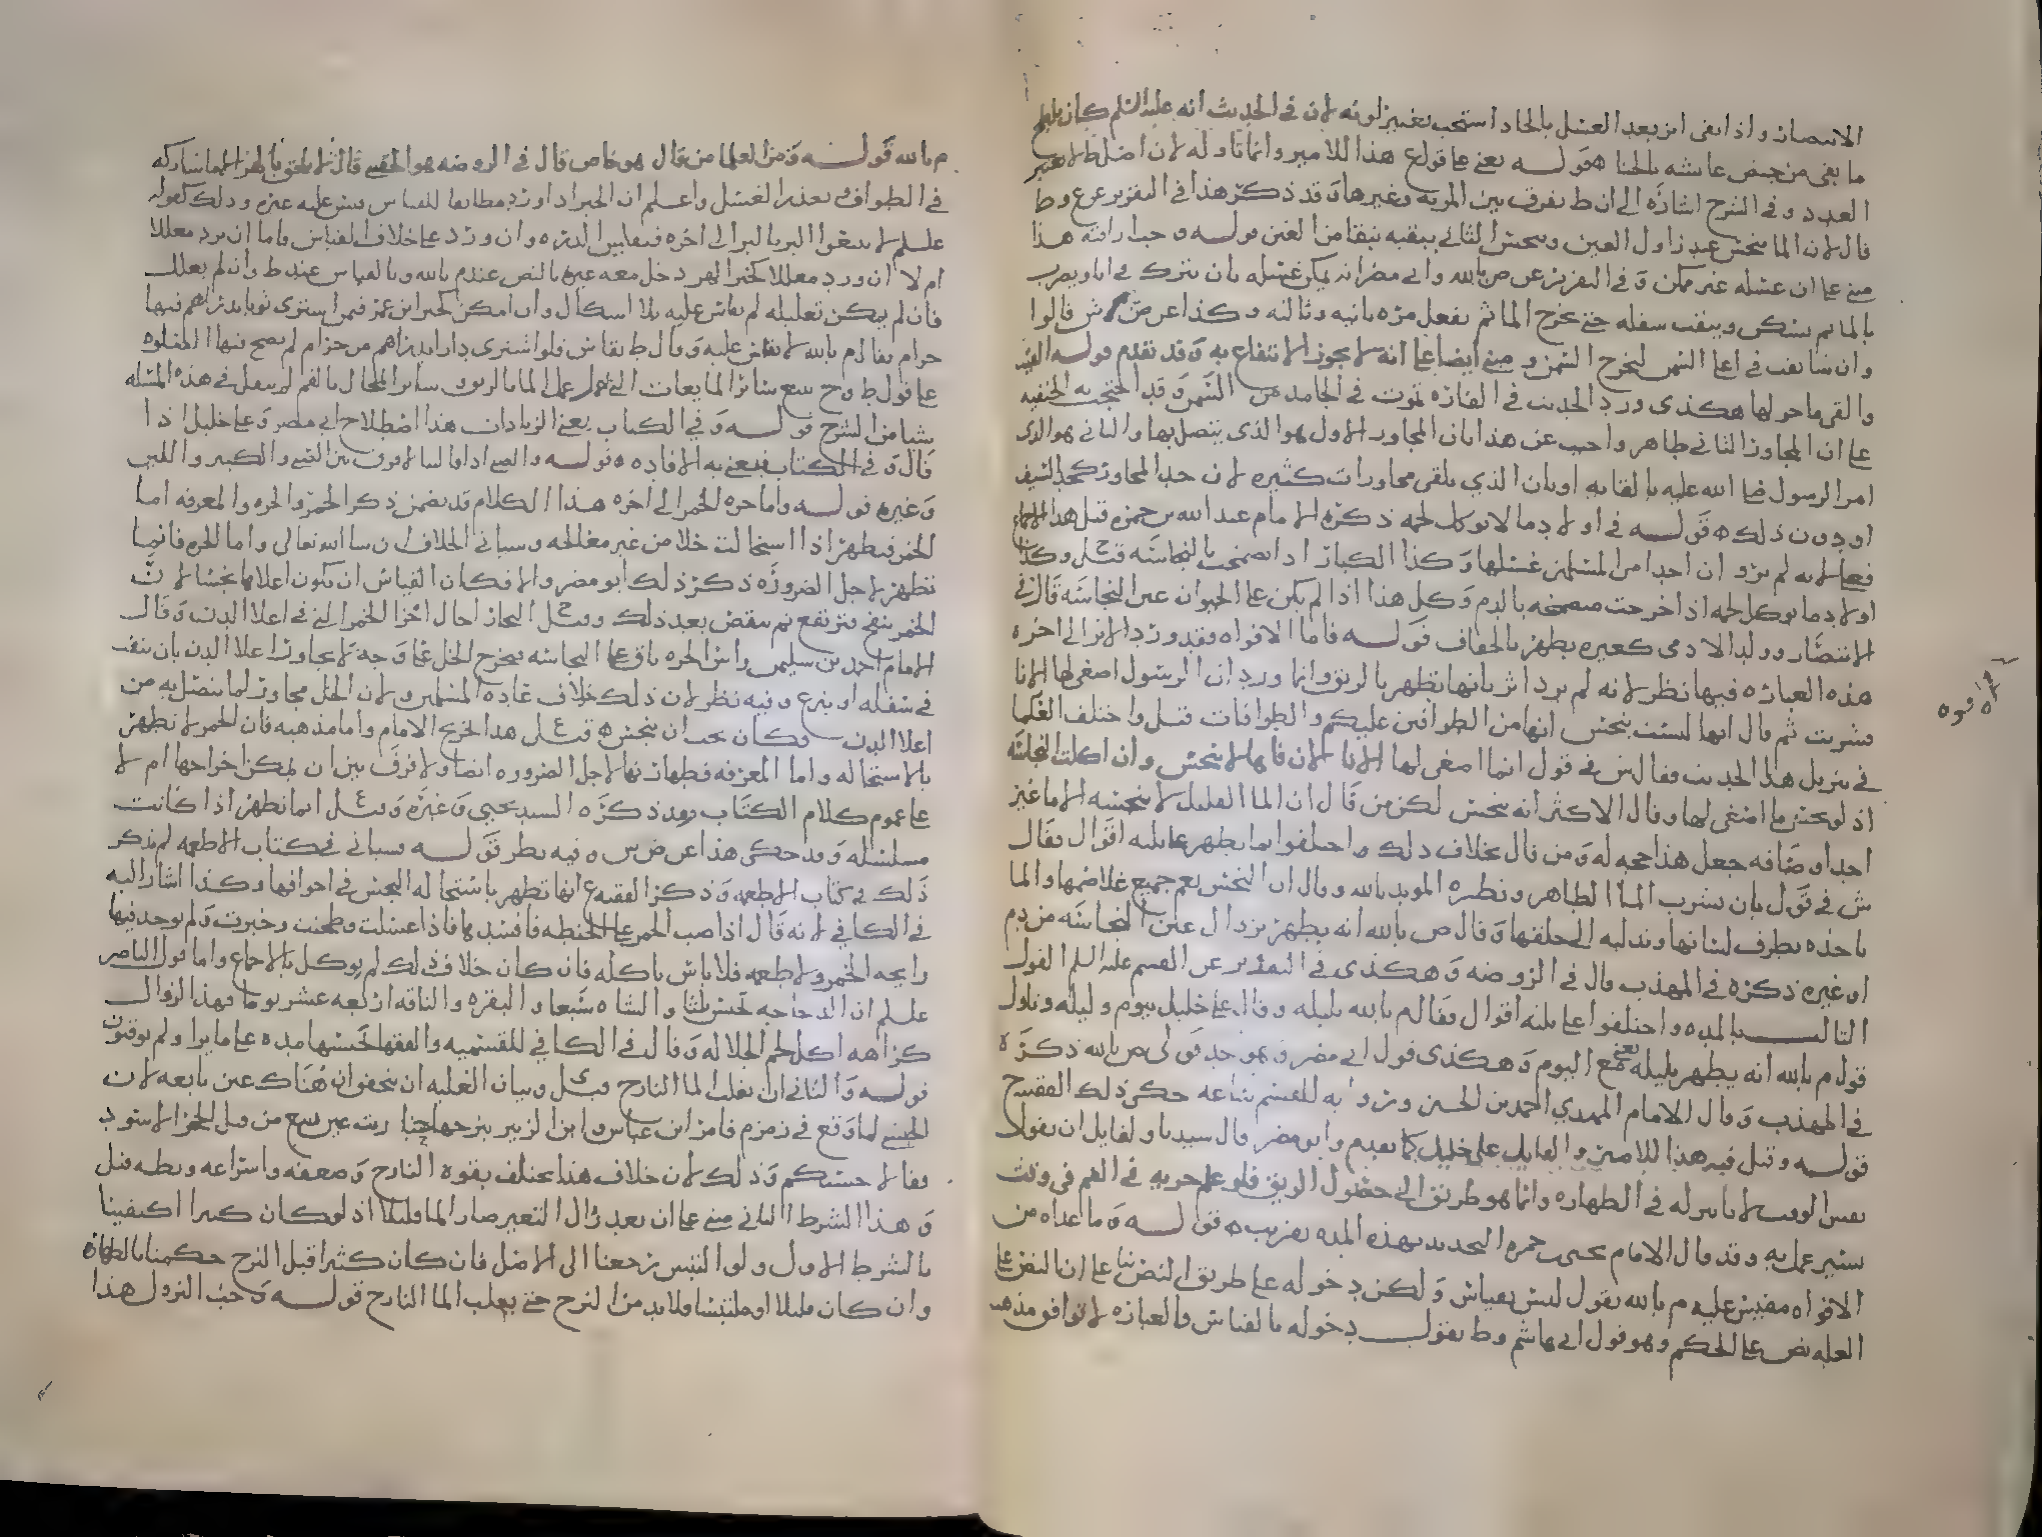 الانتصار واذا بقي اثر بعد الغسل بالحاد استحب تغيير لونه لان في الحديث انه عليه السلم كان
ما بقي من حيض عايشه بالحنا قوله يعني على قول ع هذا للامير وانما تاوله لان اصل ط لا يعتبر
العدد و في الشرح اشارة الى ان ط يفرق بين المريه وغيرها وقد ذكر هذا في التقرير عن ع و ط
قال لان الما ينجس عند زاول العين وينجس الثاني
مبني على ان غسله غير ممكن و في التقرير عن ص بالله وابي مضر انه يمكن غسله بان يترك في اناء ويصب
بالما ثم يثقب سفله حتى يخرج الما ثم يفعل مره ثانيه وثالثه وكذا عن ض ش قالوا
وان شا ثقب في اعلا السمن ليخرج السمن و مبني ايضا على انه لا يجوز الانتفاع به وقد تقدم قوله
والقي ما حولها هكذى ورد الحديث في الفارة تموت في الجامد من السمن وقد احتجت به الحنفيه
على ان المجاور الثاني طاهر واجيب عن هذا بان المجاور الاول هو الذى يتصل بها والثاني هو الذى
امر الرسول صلى الله عليه بالقايه او بان الذي يلقى مجاورات كثيره لان حد المجاور
او دون ذلك قوله في اولاد ما لا يوكل لحمه ذكره الامام عبد الله بن حمزه قيل هذا
لانه لم يرو ان احدا من المسلمين غسلها وكذا الكبار اذا تضمخت بالنجاسه قيل وكذا
اولاد ما يوكل لحمه اذا خرجت متضمخه بالدم وكل هذا اذا لم يكن على الحيوان عين النجاسه قال في
الانتصار وولد الادمي كغيره يطهر بالجفاف قوله فاما الافواه فقد ورد الاثر الى اخره
هذه العباره فيها نظر لانه لم يرد اثر بانها تطهر بالريق وانما ورد ان الرسول اصغى لها الانا
فشربت ثم قال انها ليست بنجس انها من الطوافين عليكم والطوافات قيل واختلف العلما
في تنزيل هذا الحديث فقال ش في قول انما اصغى لها الانا لان فاها لا ينجس وان اكلت النجاسه
اذ لو نجس ما اصغى لها وقال الاكثر انه ينجس لكن من قال ان الما القليل لا ينجسه الا ما غير
احد اوصافه جعل هذا حجه له و من قال بخلاف ذلك اختلفوا بما يطهر على ثلثه اقوال فقال
ش في قول بان تشرب الما الطاهر و نظره المويد بالله وقال ان النجس يعم جميع فمها والما
ياخذه بطرف لسانها وتدليه الى حلقها وقال ص بالله انه يطهر بزوال عين النجاسه من دم
او غيره ذكره في المهذب قال في الروضه وهكذى في التقرير عن القسم عليه السلم القول
الثالث بالمده واختلفوا على ثلثه اقوال فقال م بالله بليله وقال علي خليل بيوم وليله وتاول
قول م بالله انه يطهر بليله يعني مع اليوم وهكذى قول ابي مضر وهو احد قولي ص بالله ذكره
في المهذب وقال الامام المهدي احمد بن الحسين ورواه للقسم ساعه حكى ذلك الفقيه ح
قوله وقيل فيه هذا للامير والقايل علي خليل كما تقدم وابو مضر قال سيدنا ولقايل ان يقول
نفس الوقت لا تاثير له في الطهاره وانما هو طريق الى حصول الريق فلو علم جريه في الفم في وقت
يسير عمل به وقد قال الامام يحيى بن حمزه التحديد بهذه المده تقريب قوله وما عداه من
الافواه مقيس عليه م بالله يقول ليس بقياس ولكن دخوله على طريق النص بنا على ان النص على
العله نص على الحكم وهو قول ابي هاشم وط يقول دخوله بالقياس والعباره لا توافق مذهب
م بالله قوله ومن العلما من قال هو خاص قال في الروضه هو الحقيني قال لا يلحق بالهر الا ما شاركه
في الطواف و تعذر الغسل واعلم ان الخبر اذا ورد مطابقا للقياس قيس عليه غيره وذلك كقوله
علـلم لا تبيعوا البر بالبر الى اخره فنقايس الذره وان ورد على خلاف القياس فاما ان يرد معللا
ام لا ان ورد معللا كخبر الهر دخل معه غيره بالنص عند م بالله وبالقياس عند ط وان لم يعلل
فان لم يمكن تعليله لم يقاس عليه بلا اشكال وان امكن كخبر ابن عمر فيمن اشترى ثوبا بدراهم فيها
حرام فقال م بالله لا يقاس عليه وقال ط يقاس فلو اشترى دارا بدراهم من حرام لم يصح فيها الصلوه
على قول ط وح بيع ساير المايعات
شيا من الشرح قوله وفي الكتاب يعني الزيادات هذا اصطلاح ابي مضر وعلي خليل اذا
قال و في الكتاب فيعني به الافاده قوله والصبي اذا قا لبنا لا فرق بين الصبي والكبير واللبن
وغيره قوله واما جره الخمر الى اخره هذا الكلام قد تضمن ذكر الخمر والجره والمغرفه اما
الخمر فيطهر اذا استحالت خلا من غير معالجه وسياتي الخلاف ان شا الله تعالى واما الجره فانما
تطهر لاجل الضروره ذكر ذلك ابو مضر والا فكان القياس ان يكون اعلاها نجسا لان
الخمر ينتفخ فترتفع ثم ينقض بعد ذلك وقيل ح المجاز احال اجزا الخمر التي في اعلا الدن وقال
الامام احمد بن سليمن راس الجره باق على النجاسه فيخرج الخل على وجه لا يجاوز اعلا الدن بان يثقب
في سفله او ينزع وفيه نظر لان ذلك خلاف عاده المسلمين ولان الخل مجاور لما يتصل به من
اعلا الدن فكان يجب ان ينجس قيل ع هذا الامام واما مذهبه فان الخمر لا تطهر
بالاستحاله واما المغرفه فطهارتها لاجل الضروره ايضا ولا فرق بين ان يمكن اخراجها ام لا
على عموم كلام الكتاب وقد ذكره السيد يحيى وغيره وقيل ع انما تطهر اذا كانت
مسلسله وقد حكى هذا عن ض ش وفيه نظر قوله وسياتي في كتاب الاطعمه لم يذكر
ذلك في كتاب الاطعمه وذكر الفقيه ع انها تطهر باستحاله النجس في اجوافها وكذا اشار اليه
في الكافي لانه قال اذا صب الخمر على الحنطه فافسدها فاذا غسلت وطحنت وخبزت ولم يوجد فيها
رايحه الخمر ولا طعمه فلا باس باكله فان كان خلاف ذلك لم يوكل بالاجماع واما قول الناصر
علـلم ان الدجاجه تحبس ثلثا والشاه سبعا والبقره والناقه اربعه عشر يوما فهذا لزوال
كراهه اكل لحم الجلاله وقال في الكافي للقسميه والفقها تحبسها مده على ما يرا ولم يوقتوا
قوله والثاني ان يغلب الما النازح قيل ي وبيان الغلبه ان ينجفوان هناك عين نابعه لان
الحبشي لما وقع في زمزم فامر ابن عباس وابن الزبير بنزحها حتى رات عين تنبع من قبل الحجر الاسود
فقالا حسبكم وذلك لان خلاف هذا يختلف بقوه النازح وضعفه واسراعه وبطه قيل
وهذا الشرط الثاني مبني على ان بعد زال التغير صار الما قليلا اذ لو كان كثيرا اكتفينا
بالشرط الاول ولو التبس رجعنا الى الاصل فان كان كثيرا قبل النزح حكمنا بالطهاره
وان كان قليلا او ملتبسا فلا بد من النزح حتى يغلب الما النازح قوله وحد النزول هذا